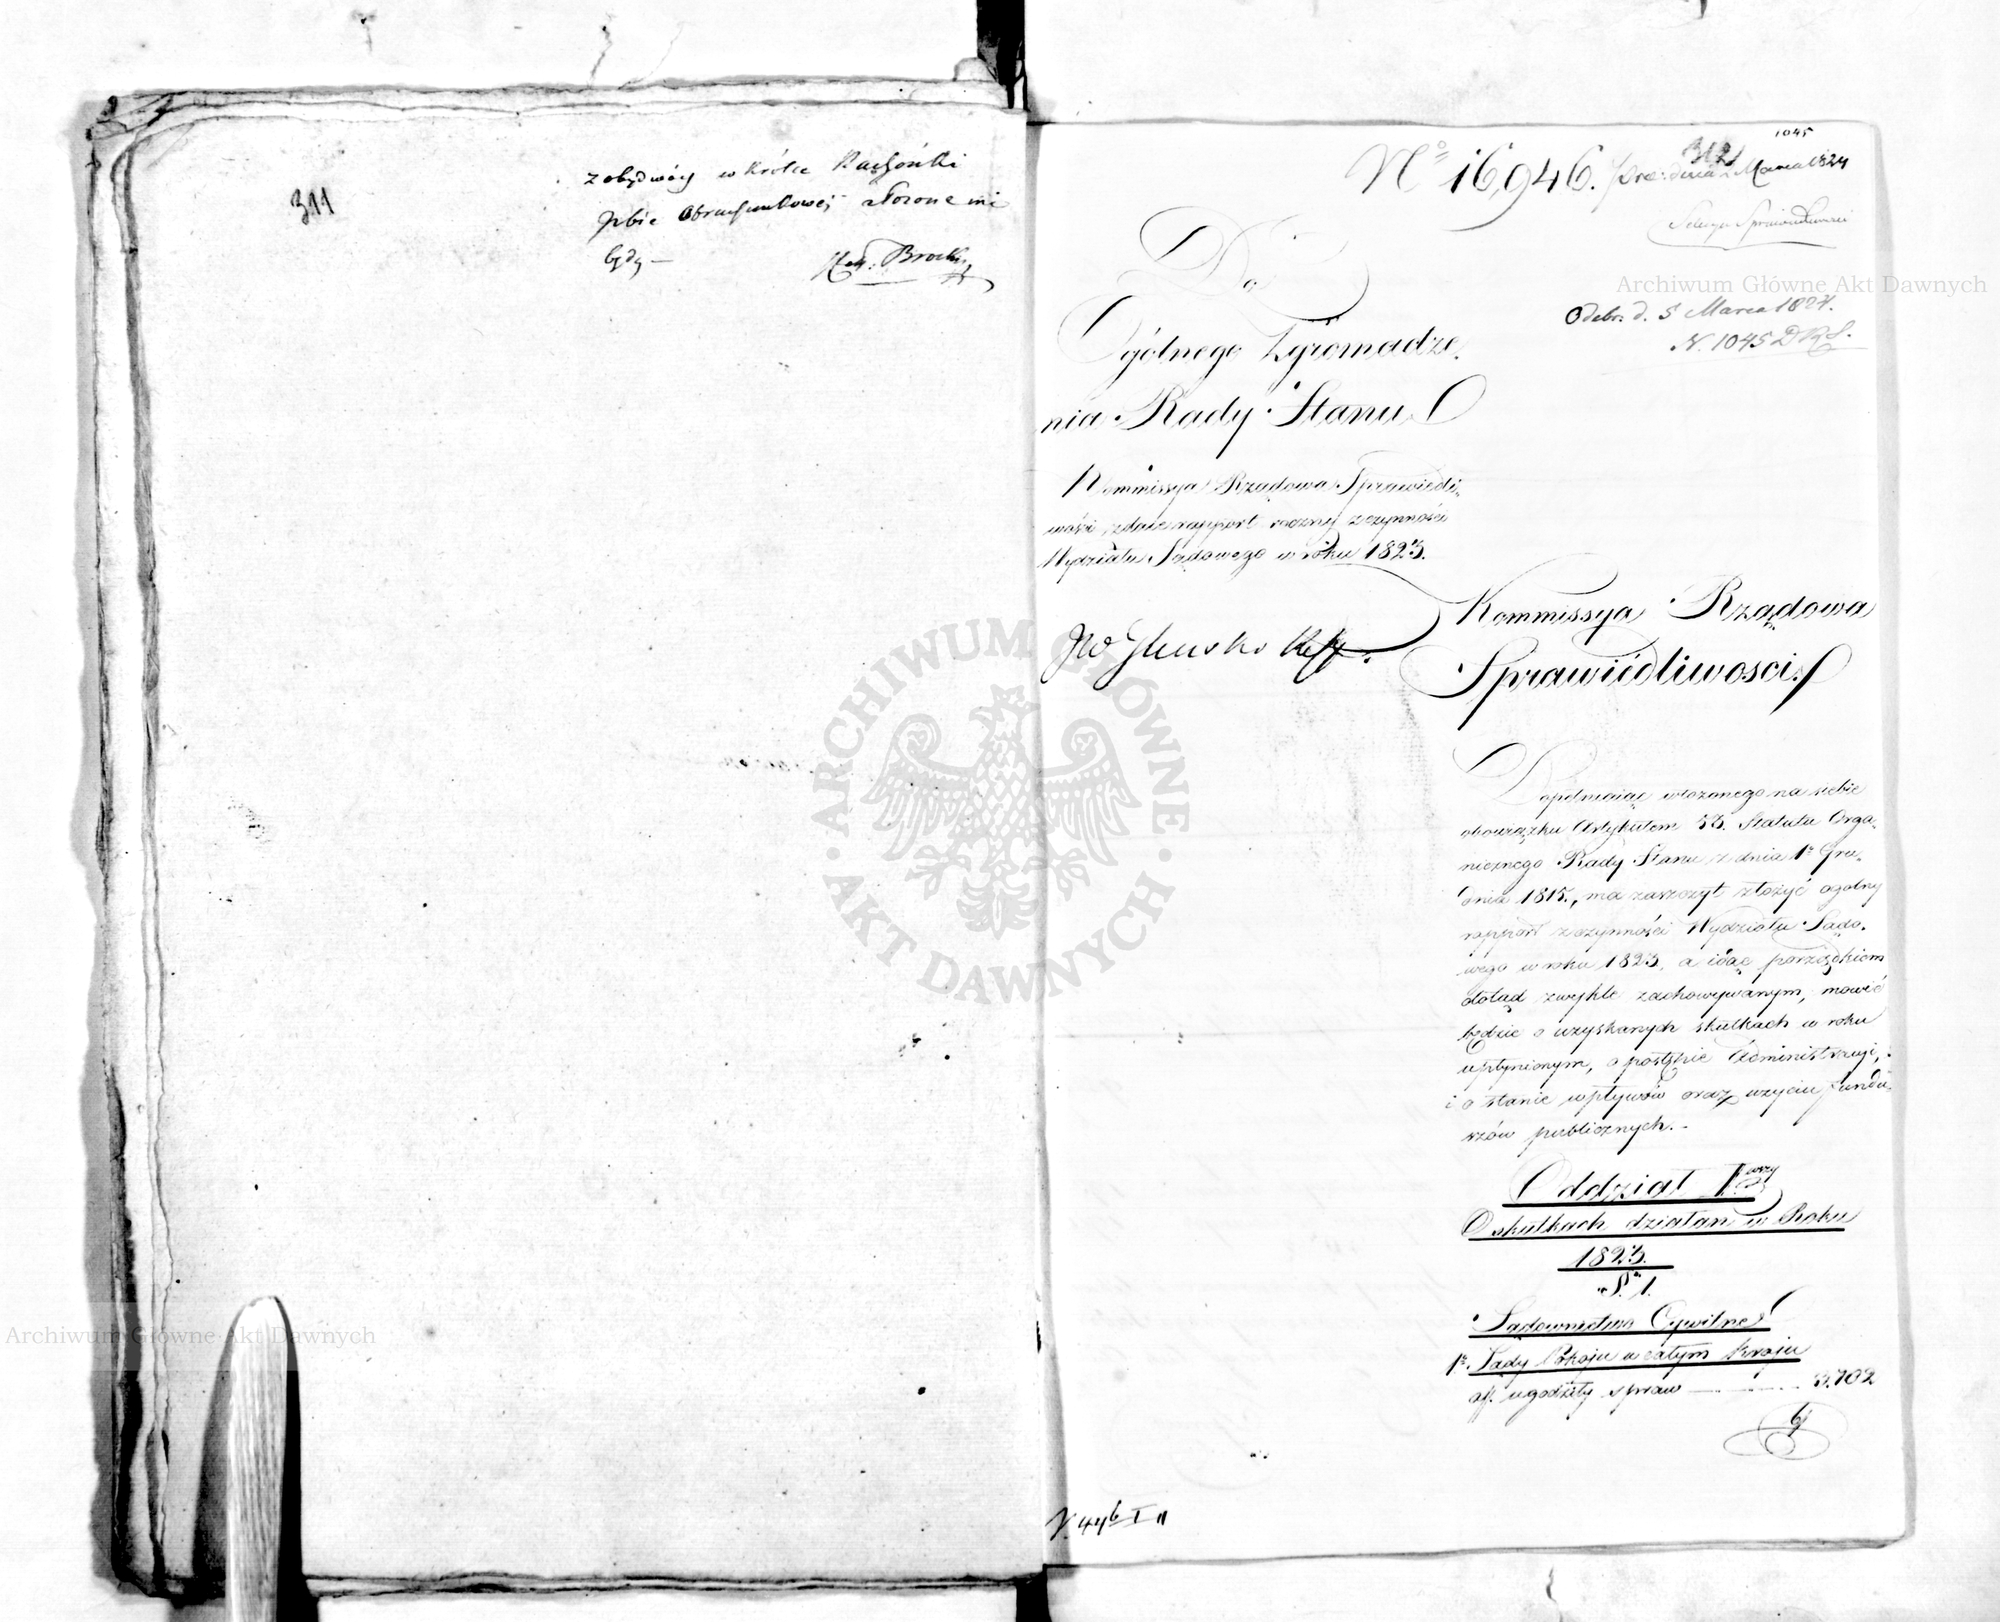 311
z obydwóch wkrótce Rachunki
Izbie Obrachunkowej złożone nie
będą —
Brocki
1045
312
No 16,946. pre: dnia Marca 1824
Sekcya Sprawiedliwości
Odebr. d. 5 Marca 1824.
N. 1045 DRS.
Do
Ogólnego Zgromadze-
nia Rady Stanu
Kommissya Rządowa Sprawiedli-
wości, zdaie rapport roczny z czynności
Wydziału Sądowego w roku 1823.
JW
Kommissya Rządowa
Sprawiedliwosci.
Dopełniaiąc włożonego na siebie
obowiązku Artykułem 33. Statutu Orga-
nicznego Rady Stanu z dnia 1o Gru-
dnia 1815., ma zaszczyt złożyć ogolny
rapport z czynności Wydziału Sądo-
wego w roku 1823, a idąc porządkiem
dotąd zwykle zachowywanym, mowić
będzie o uzyskanych skutkach w roku
upłynionym, o postępie Administracyi,
i o stanie wpływów oraz użyciu fundu-
szów publicznych. -
Oddział Iwszy
O skutkach działań w Roku
1823.
§. 1.
Sądownictwo Cywilne
1o. Sądy Pokoju w całym Kraju
a/. ugodziły spraw 3,702
b/
N. 44 b I II
Archiwum Główne Akt Dawnych
Archiwum Główne Akt Dawnych
ARCHIWUM GŁÓWNE
AKT DAWNYCH